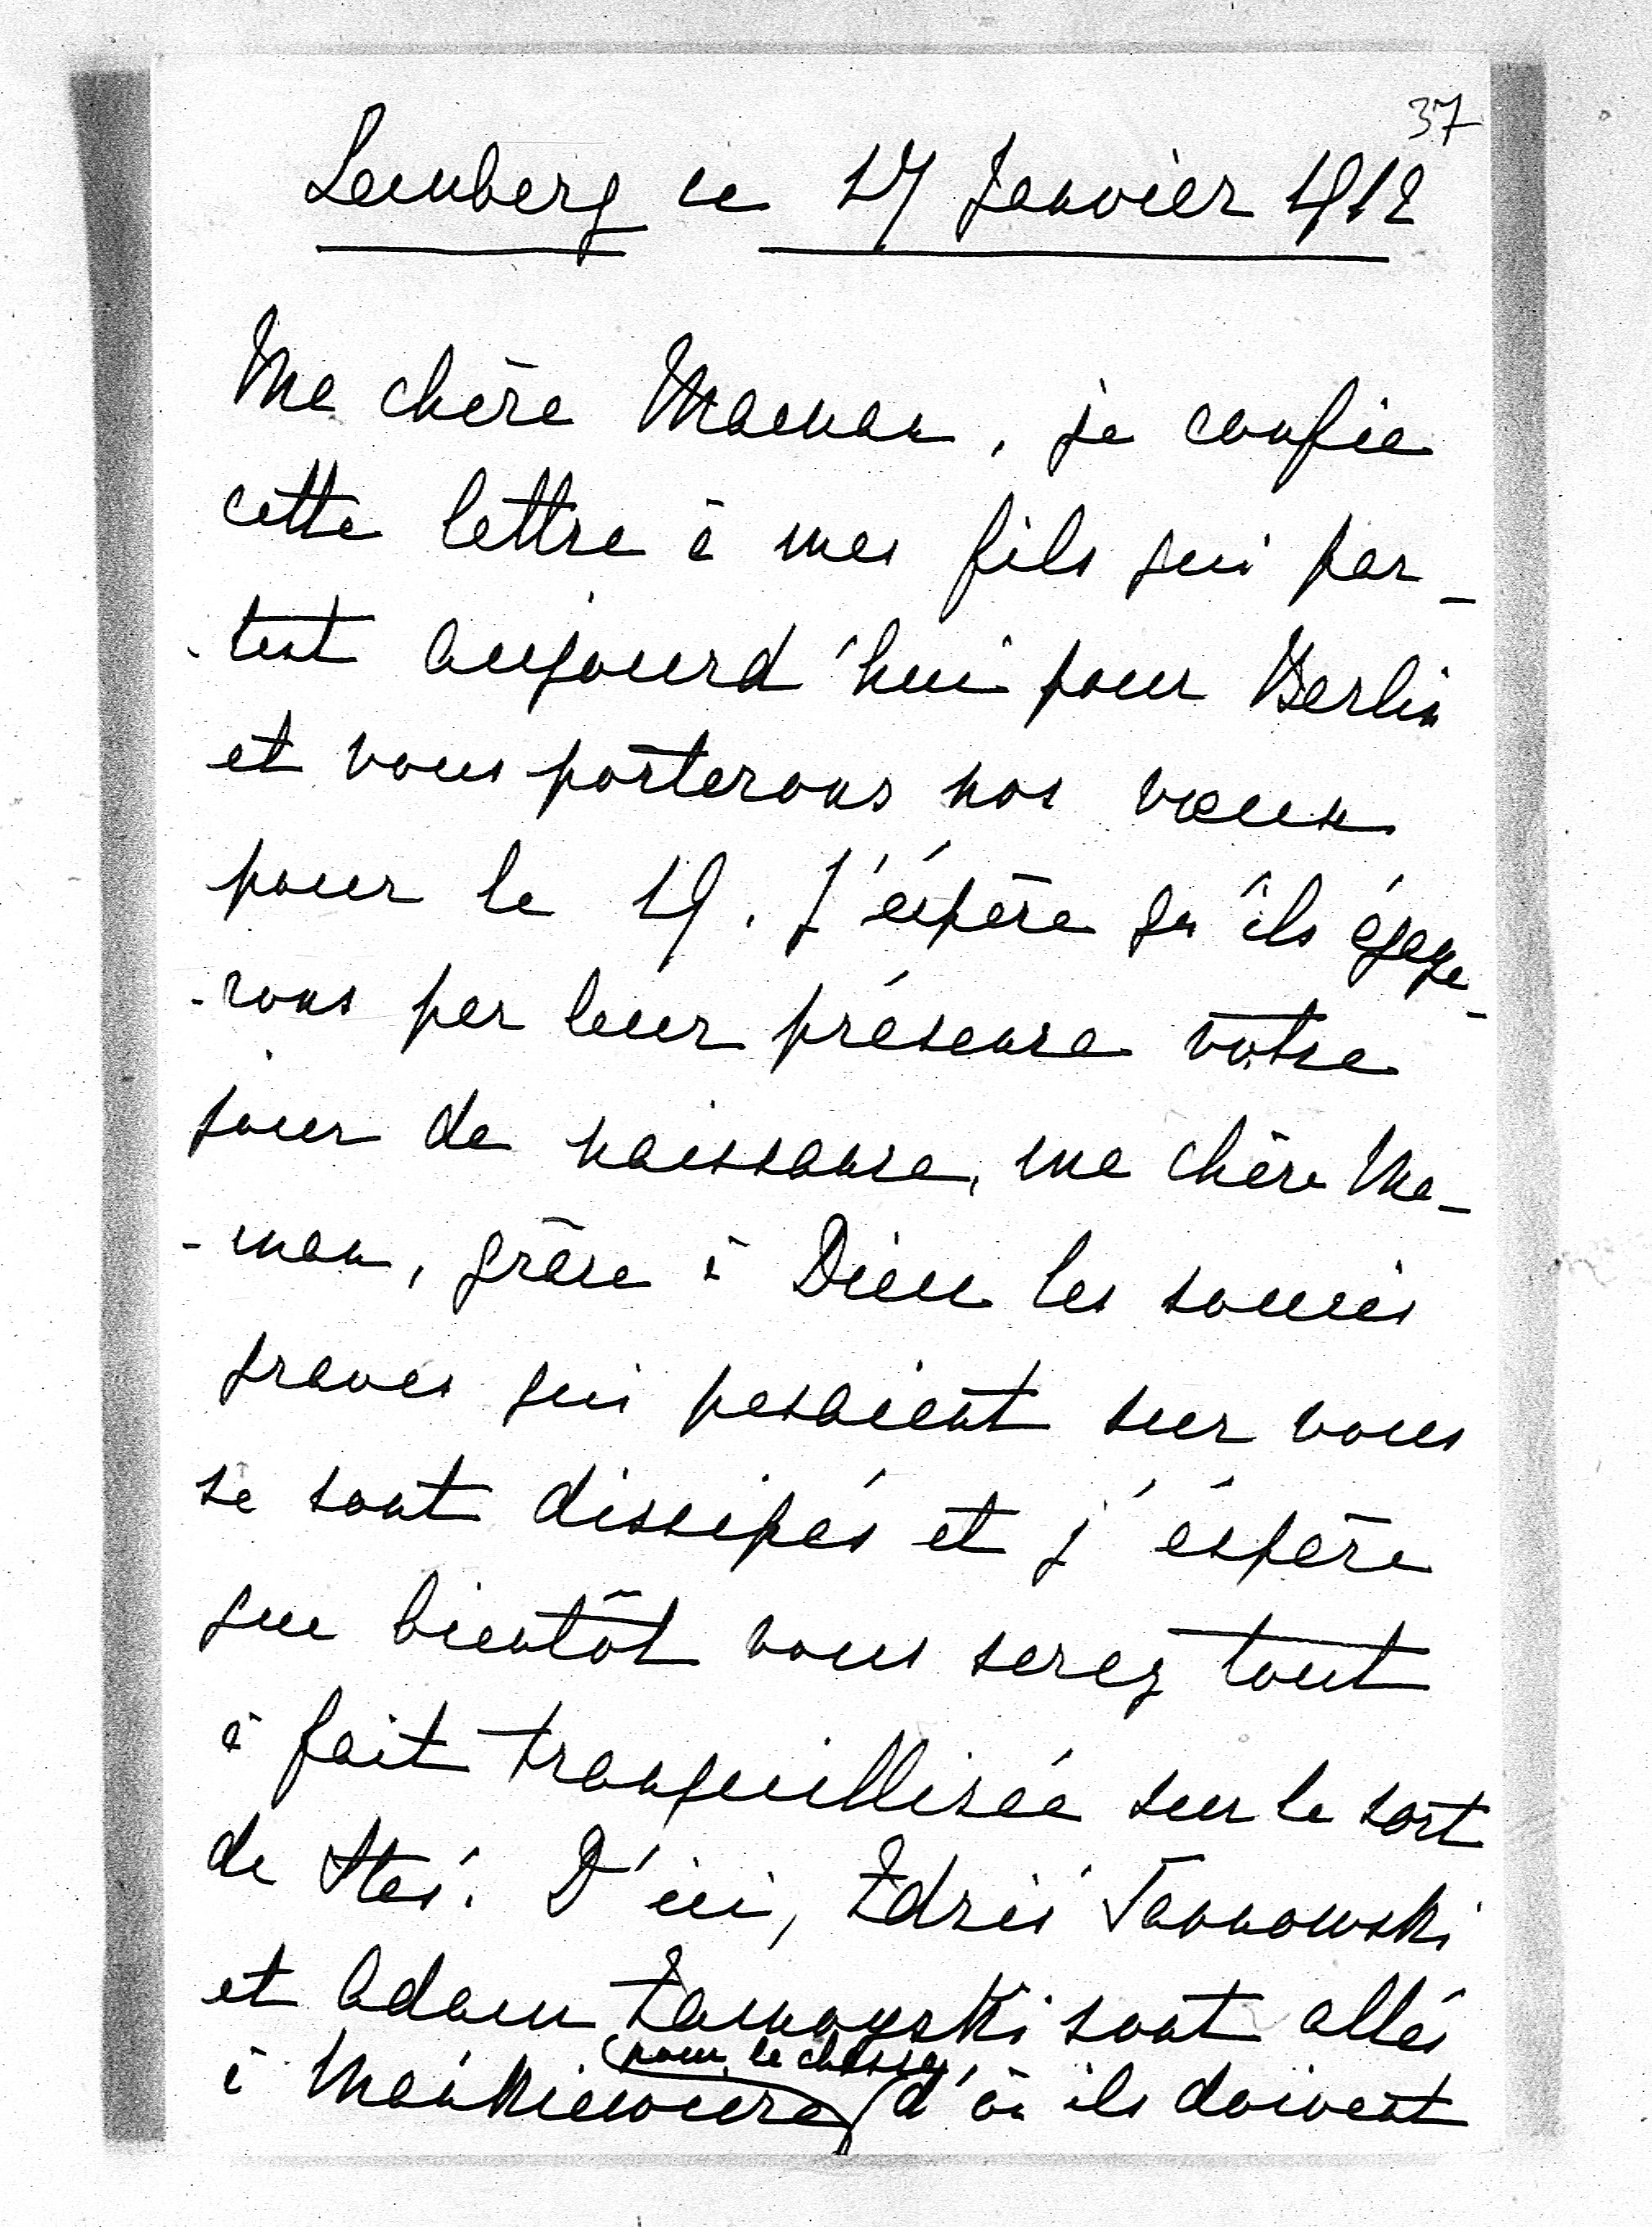 37
Lemberg ce 17 Janvier 1912
Ma chère Maman, je confie
cette lettre à mes fils qui par-
-tent aujourd'hui pour Berlin
et vous porterons nos vœux
pour le 19. J'éspère qu'ils égaye-
-rons par leur présence votre
jour de naissance, ma chère Ma-
-man, grâce à Dieu les soucis
graves qui pesaient sur vous
se sont dissipés et j'éspère
que bientôt vous serez tout
à fait tranquillisée sur le sort
de Staś. D'ici, Zdziś Tarnowski
et Adam Zamoyski sont allés
(pour la chasse)
à Mańkiewicze d'où ils doivent